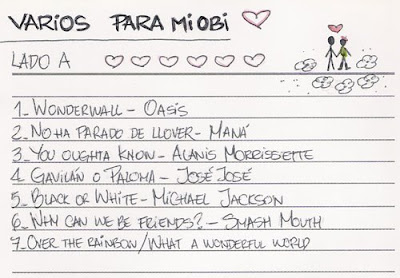 VARIOS PARA MI OBI
LADO A
1_ WONDERWALL - OASIS
2_ NO HA PARADO DE LLOVER - MANÁ
3_ YOU OUGHTA KNOW - ALANIS MORRISSETTE
4_ GAVILÁN O PALOMA - JOSÉ JOSÉ
5_ BLACK OR WHITE - MICHAEL JACKSON
6_ WHY CAN WE BE FRIENDS? - SMASH MOUTH
7_ OVER THE RAINBOW / WHAT A WONDERFUL WORLD